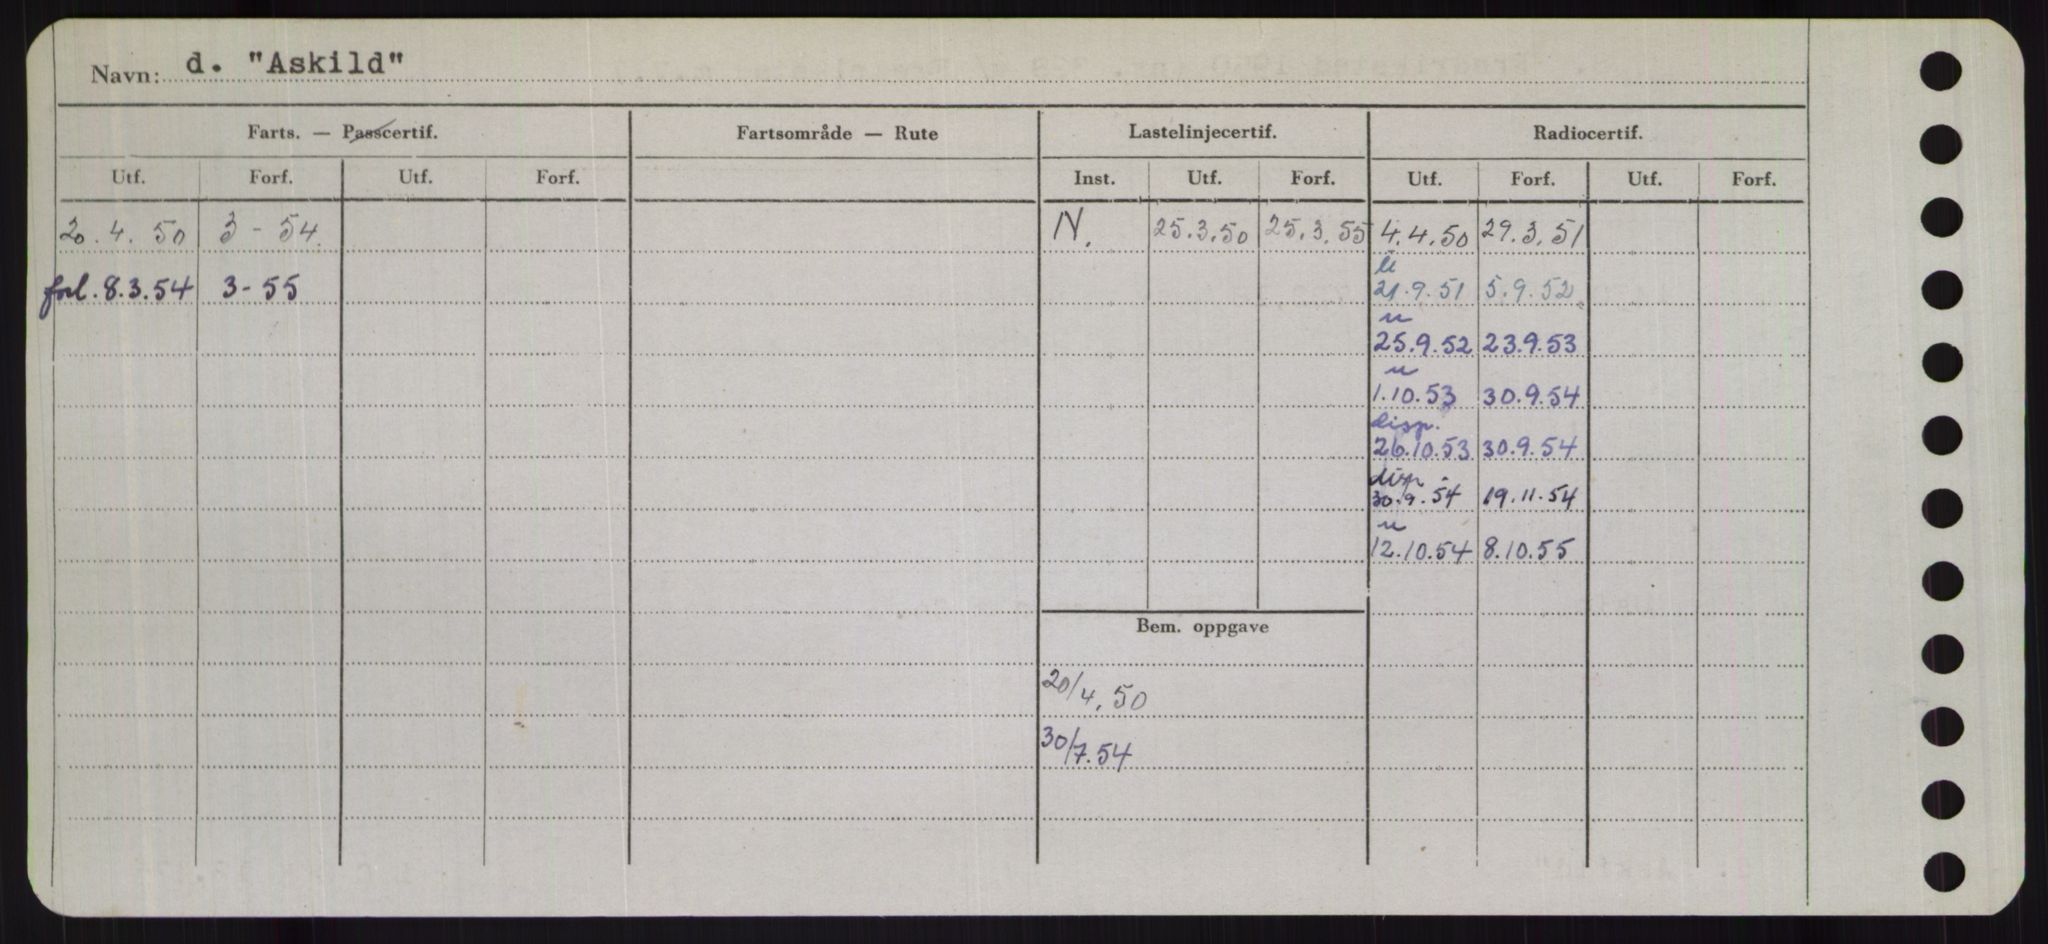 Navn: d. "Askild"
Farts. — Passcertif. Fartsområde — Rute Lastelinjecertif. Radiocertif.
Utf. Forf. Utf. Forf. Inst. Utf. Forf. Utf. Forf. Utf. Forf.
20.4.50 3-54 N. 25.3.50 25.3.55 4.4.50 29.3.51
forl. 8.3.54 3-55 21.9.51 5.9.52
u
25.9.52 23.9.53
u
1.10.53 30.9.54
disp.
26.10.53 30.9.54
disp.
30.9.54 19.11.54
u
12.10.54 8.10.55
Bem. oppgave
20/4.50
30/7.54